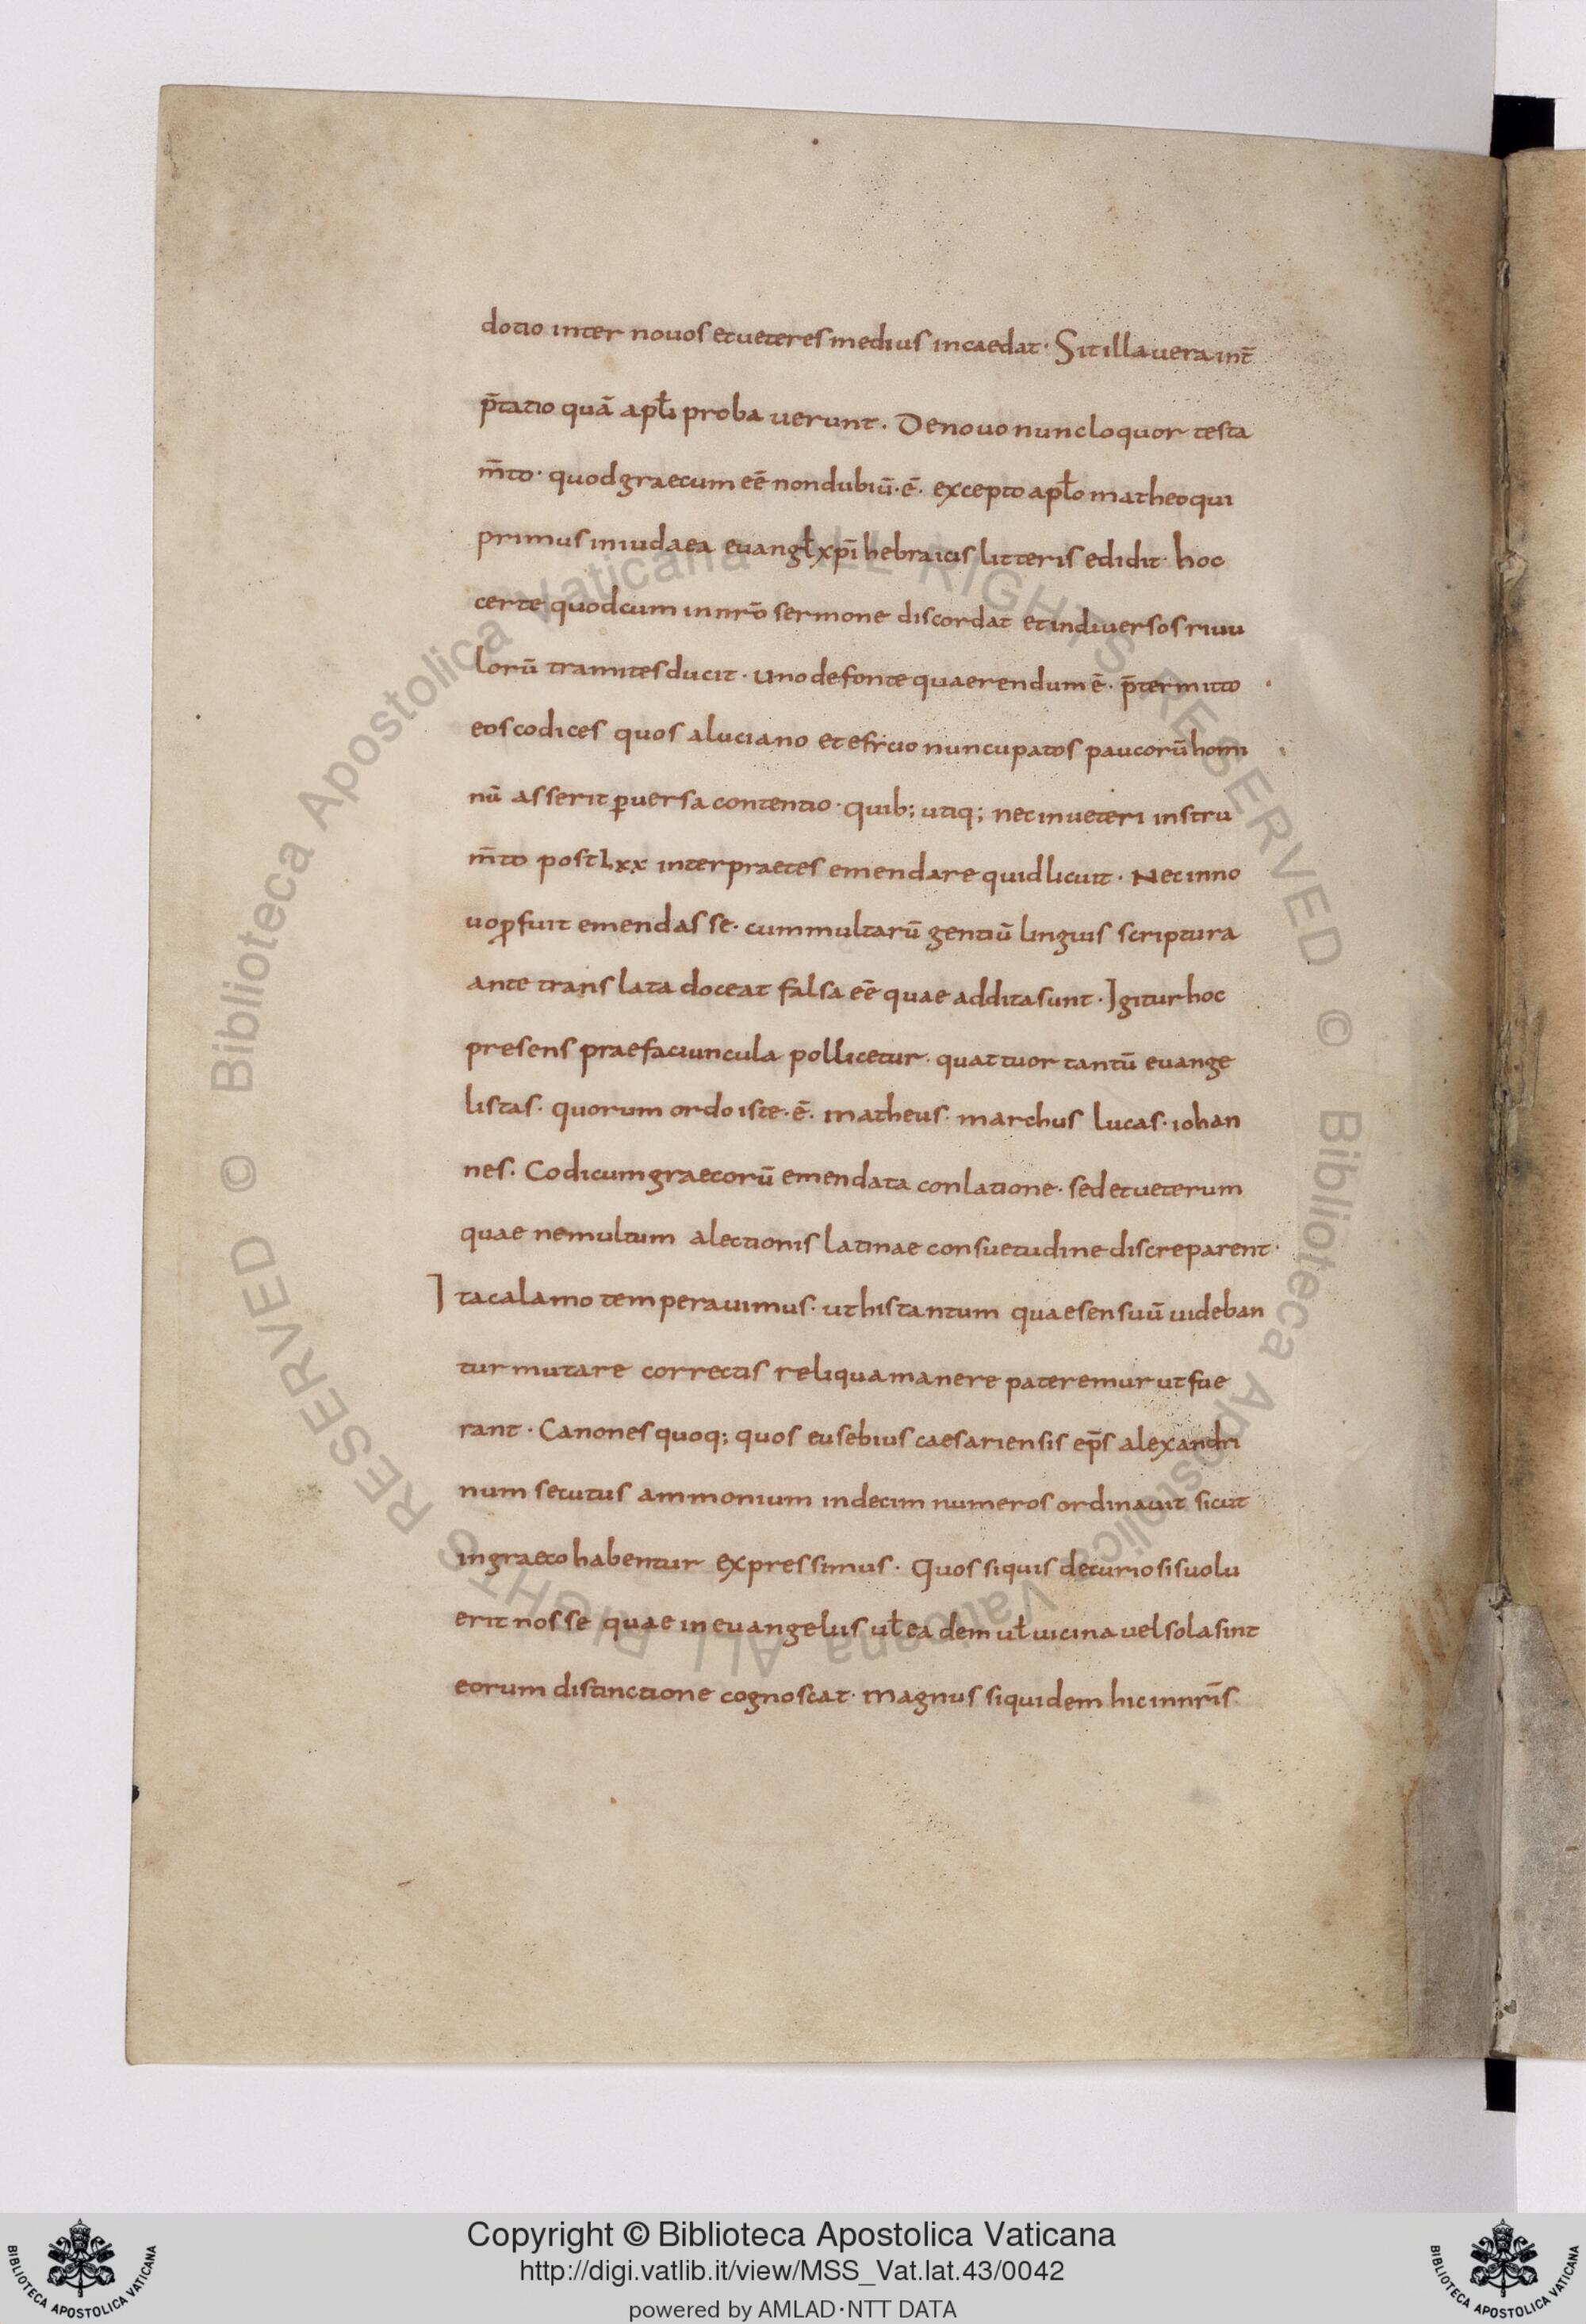 dotio inter novos et veteres medius incaedat · Sit illa vera int̄
p̄tatio quā apłi probaverunt . De novo nunc loquor testa
m̄to · quod graecum eē non dubiū · ē · excepto apło matheo qui
primus in iudaea evangł xpī hebraicis litteris edidit · hoc
certe quod cum in nrō sermone discordat et in diversos rivu
lorū tramites ducit · uno de fonte quaerendum ē · p̄termitto
eos codices quos a luciano et esicio nuncupatos paucorū homi
nū asserit ꝑversa contentio · quib; utiq; nec in veteri instru
m̄to post Lxx interpraetes emendare quid licuit · Nec in no
vo ꝓfuit emendasse · cum multarū gentiū linguis scriptura
ante translata doceat falsa eē quae addita sunt · Igitur hoc
presens praefaciuncula pollicetur · quattuor tantū evange
listas · quorum ordo iste · ē · matheus · marchus lucas · iohan
nes · Codicum graecorū emendata conlatione · sed et veterum
quae ne multum a lectionis latinae consuetudine discreparent ·
Ita calamo temperavimus · ut his tantum quae sensuū videban
tur mutare correctis reliqua manere pateremur ut fue
rant · Canones quoq; quos eusebius caesariensis ep̄s alexandri
num secutus ammonium in decim numeros ordinavit sicut
in graeco habentur expressimus · Quos si quis de curiosis volu
erit nosse quae in evangeliis uł eadem uł vicina vel sola sint
eorum distinctione cognoscat · magnus siquidem hic in nrīs
© Biblioteca Apostolica Vaticana ALL RIGHTS RESERVED © Biblioteca Apostolica Vaticana ALL RIGHTS RESERVED
Copyright © Biblioteca Apostolica Vaticana
http://digi.vatlib.it/view/MSS_Vat.lat.43/0042
powered by AMLAD·NTT DATA
BIBLIOTECA APOSTOLICA VATICANA
BIBLIOTECA APOSTOLICA VATICANA